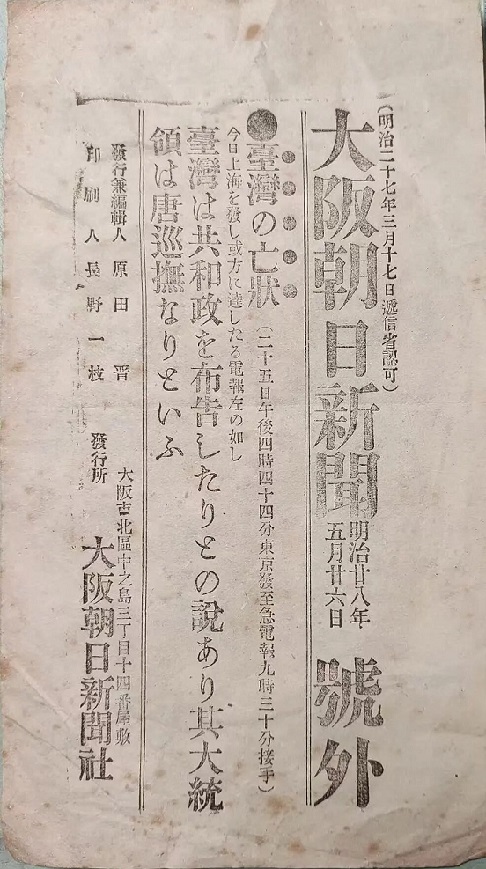 (明治二十七年三月十七日遞信省認可)
大阪朝日新聞 明治廿八年五月廿六日 號外
●臺灣の亡狀 (二十五日午後四時四十四分東京發至急電報九時三十分接手)
今日上海を發し或方に達したる電報左の如し
臺灣は共和政を布告したりとの說あり其大統
領は唐巡撫なりといふ
發行兼編輯人 原田
印刷人 長野一枝
發行所 大阪市北區中之島三丁目十四番屋敷
大阪朝日新聞社